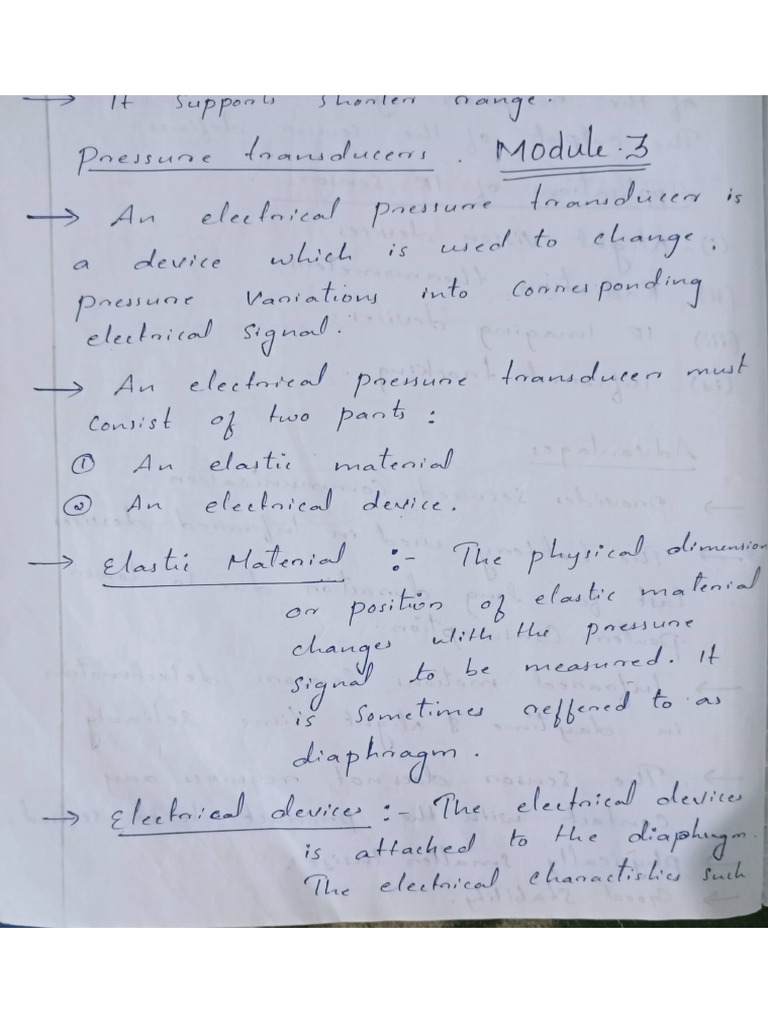 → It supports shorter range.
Pressure transducers. Module.3
→ An electrical pressure transducer is
a device which is used to change
pressure variations into corresponding
electrical signal.
→ An electrical pressure transducer must
consist of two parts :
① An elastic material
② An electrical device.
→ Elastic Material :- The physical dimension
or position of elastic material
changes with the pressure
signal to be measured. It
is sometimes reffered to as
diaphragm.
→ Electrical devices :- The electrical devices
is attached to the diaphrgm.
The electrical charactistics such